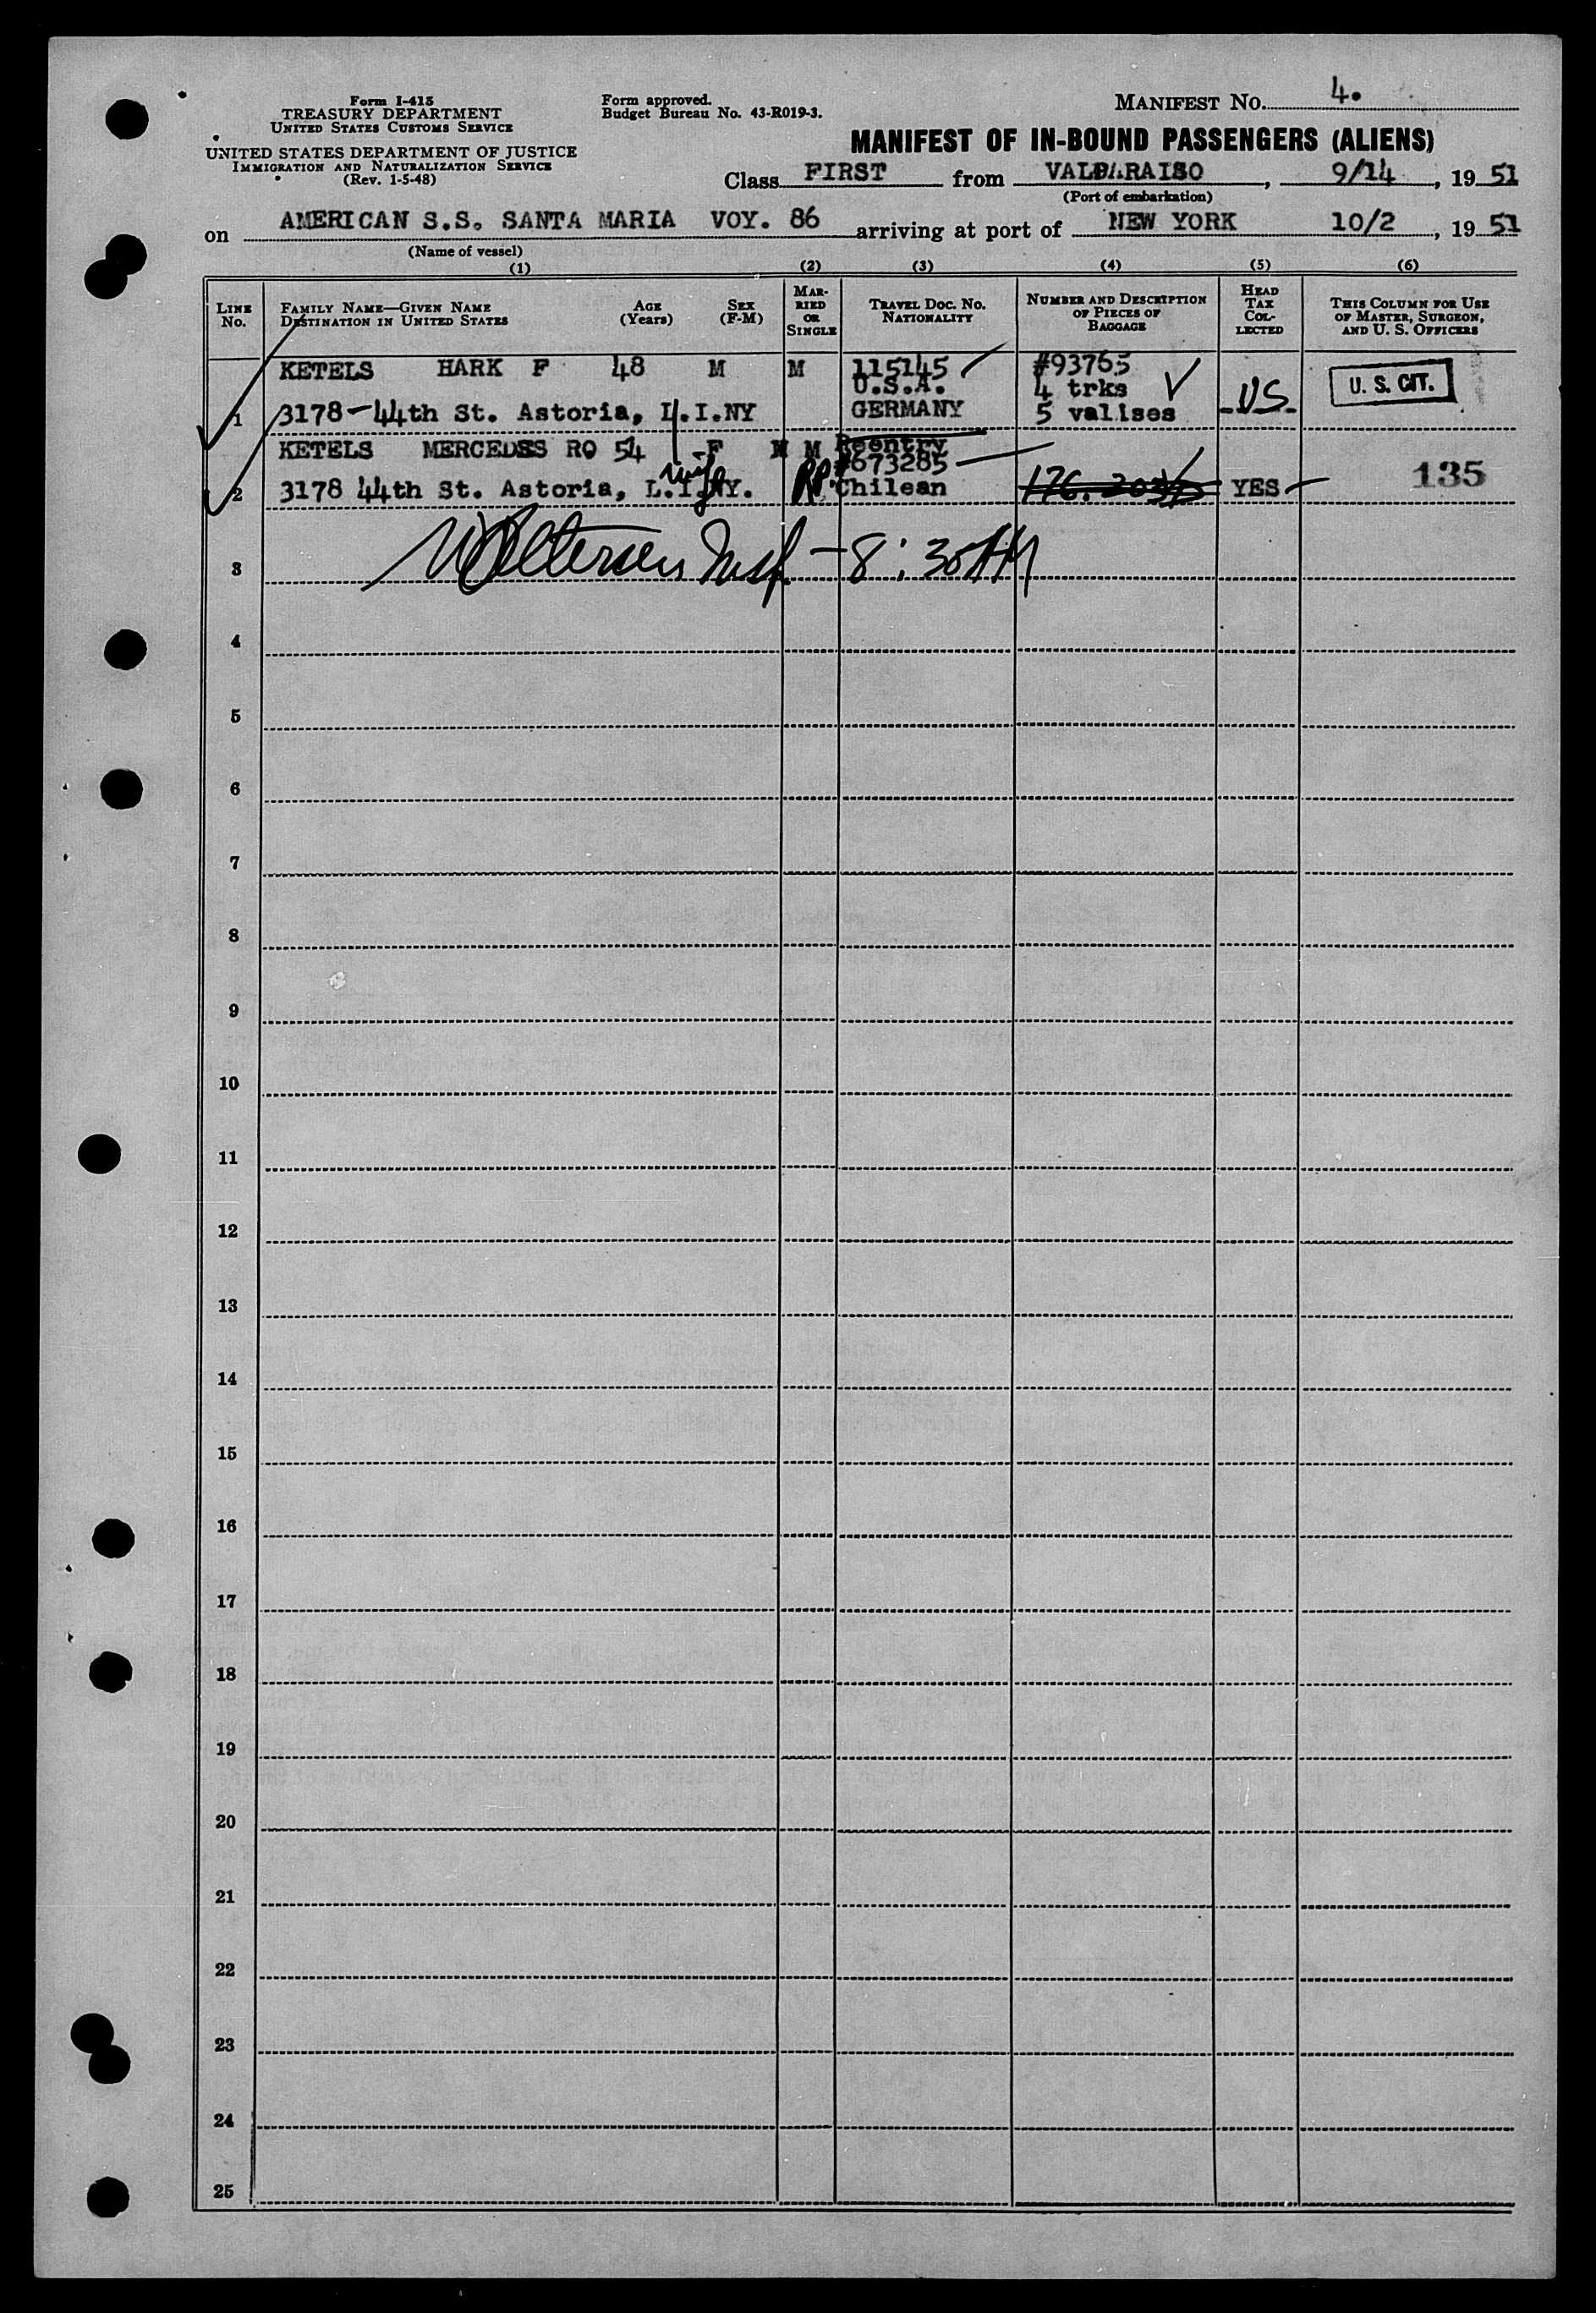 Form I-415
TREASURY DEPARTMENT
UNITED STATES CUSTOMS SERVICE
UNITED STATES DEPARTMENT OF JUSTICE
IMMIGRATION AND NATURALIZATION SERVICE
(Rev. 1-5-48)
Form approved.
Budget Bureau No. 43-R019-3.
MANIFEST NO. 4.
MANIFEST OF IN-BOUND PASSENGERS (ALIENS)
Class FIRST from VALPARAISO, 9/14, 19 51
(Port of embarkation)
on AMERICAN S.S. SANTA MARIA VOY. 86 arriving at port of NEW YORK 10/2, 19 51
(Name of vessel)
(1) (2) (3) (4) (5) (6)
LINE No. FAMILY NAME—GIVEN NAME DESTINATION IN UNITED STATES AGE (Years) SEX (F-M) MARRIED OR SINGLE TRAVEL DOC. NO. NATIONALITY NUMBER AND DESCRIPTION OF PIECES OF BAGGAGE HEAD TAX COLLECTED THIS COLUMN FOR USE OF MASTER, SURGEON, AND U. S. OFFICERS
KETELS HARK F 48 M M 115145 #93765
U.S.A. 4 trks US U. S. CIT.
1 3178-44th St. Astoria, L.I.NY GERMANY 5 valises
KETELS MERCEDES RO 54 F M M Reentry
wife #673285
2 3178 44th St. Astoria, L.I.NY. RP. Chilean YES 135
3 Insp - 8:30 AM
4
5
6
7
8
9
10
11
12
13
14
15
16
17
18
19
20
21
22
23
24
25